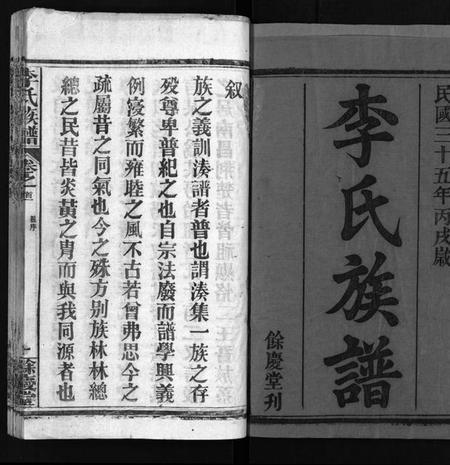 民國三十五年丙戌歲
李氏族譜
餘慶堂刊
叙
族之義訓湊譜者普也謂湊集一族之存
歿尊卑普紀之也自宗法廢而譜學興義
例寖繁而雍睦之風不古若曾弗思今之
疏屬昔之同氣也今之殊方别族林林總
總之民昔皆炎黃之胄而與我同源者也
李氏族譜 卷首
餘慶堂